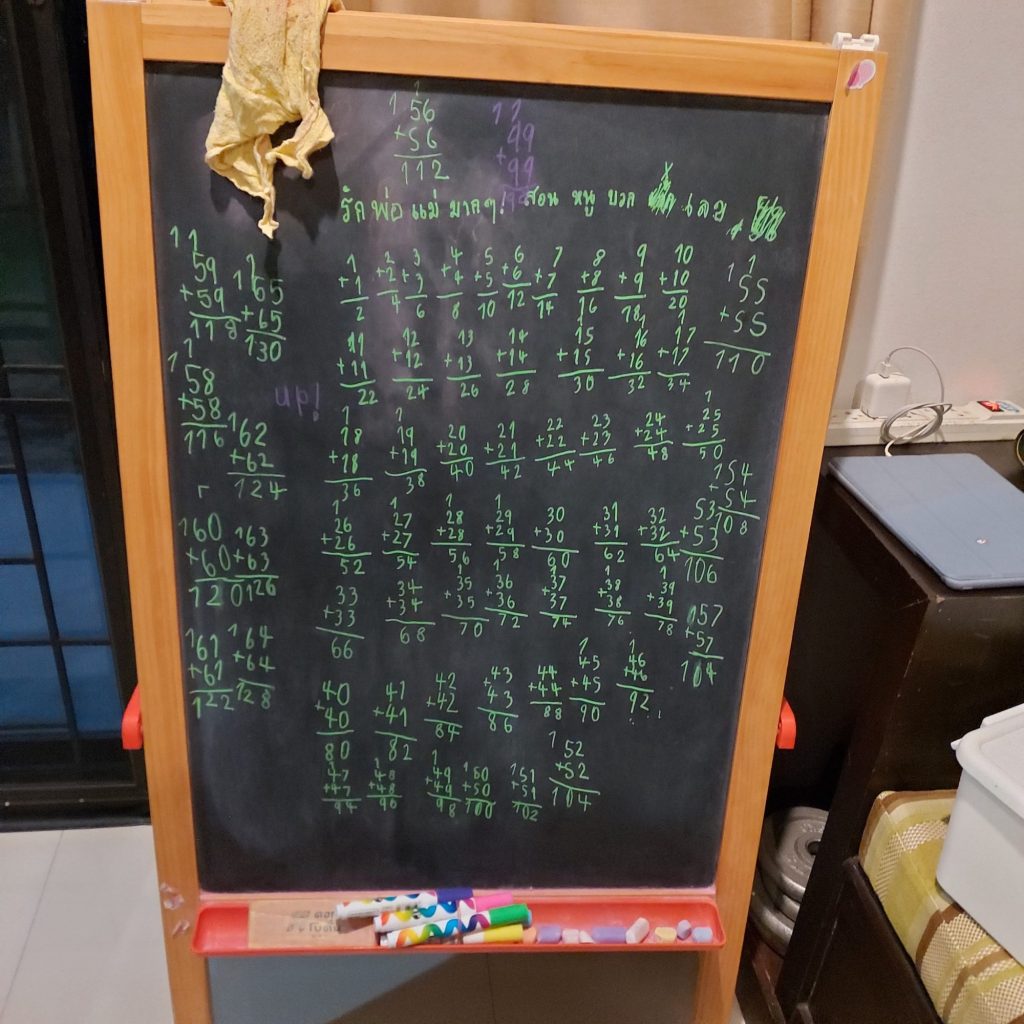 1
1 56
+56
112
1 1
99
+99
รักพ่อแม่ มากๆ! สอน หนู บวก เลข
1 1
59
+59
118
1
1 65
+65
130
1 1
58
+58
116
1 62
+62
124
1 60
+60
120
1 63
+63
126
1 61
+61
122
1 64
+64
128
up!
1
+1
2
2
+2
4
3
+3
6
4
+4
8
5
+5
10
6
+6
12
7
+7
14
8
+8
16
9
+9
18
10
+10
20
11
+11
22
12
+12
24
13
+13
26
14
+14
28
15
+15
30
1
16
+16
32
1
17
+17
34
1
18
+18
36
1
19
+19
38
20
+20
40
21
+21
42
22
+22
44
23
+23
46
24
+24
48
1
25
+25
50
1
26
+26
52
1
27
+27
54
1
28
+28
56
1
29
+29
58
30
+30
60
31
+31
62
32
+32
64
33
+33
66
34
+34
68
1
35
+35
70
1
36
+36
72
1
37
+37
74
1
38
+38
76
1
39
+39
78
40
+40
80
41
+41
82
42
+42
84
43
+43
86
44
+44
88
1
45
+45
90
1
46
+46
92
1
47
+47
94
1
48
+48
96
1
49
+49
98
1 50
+50
100
1 51
+51
102
1 52
+52
104
1
1 55
+55
110
1 54
+54
108
53
+53
106
1 57
+57
104